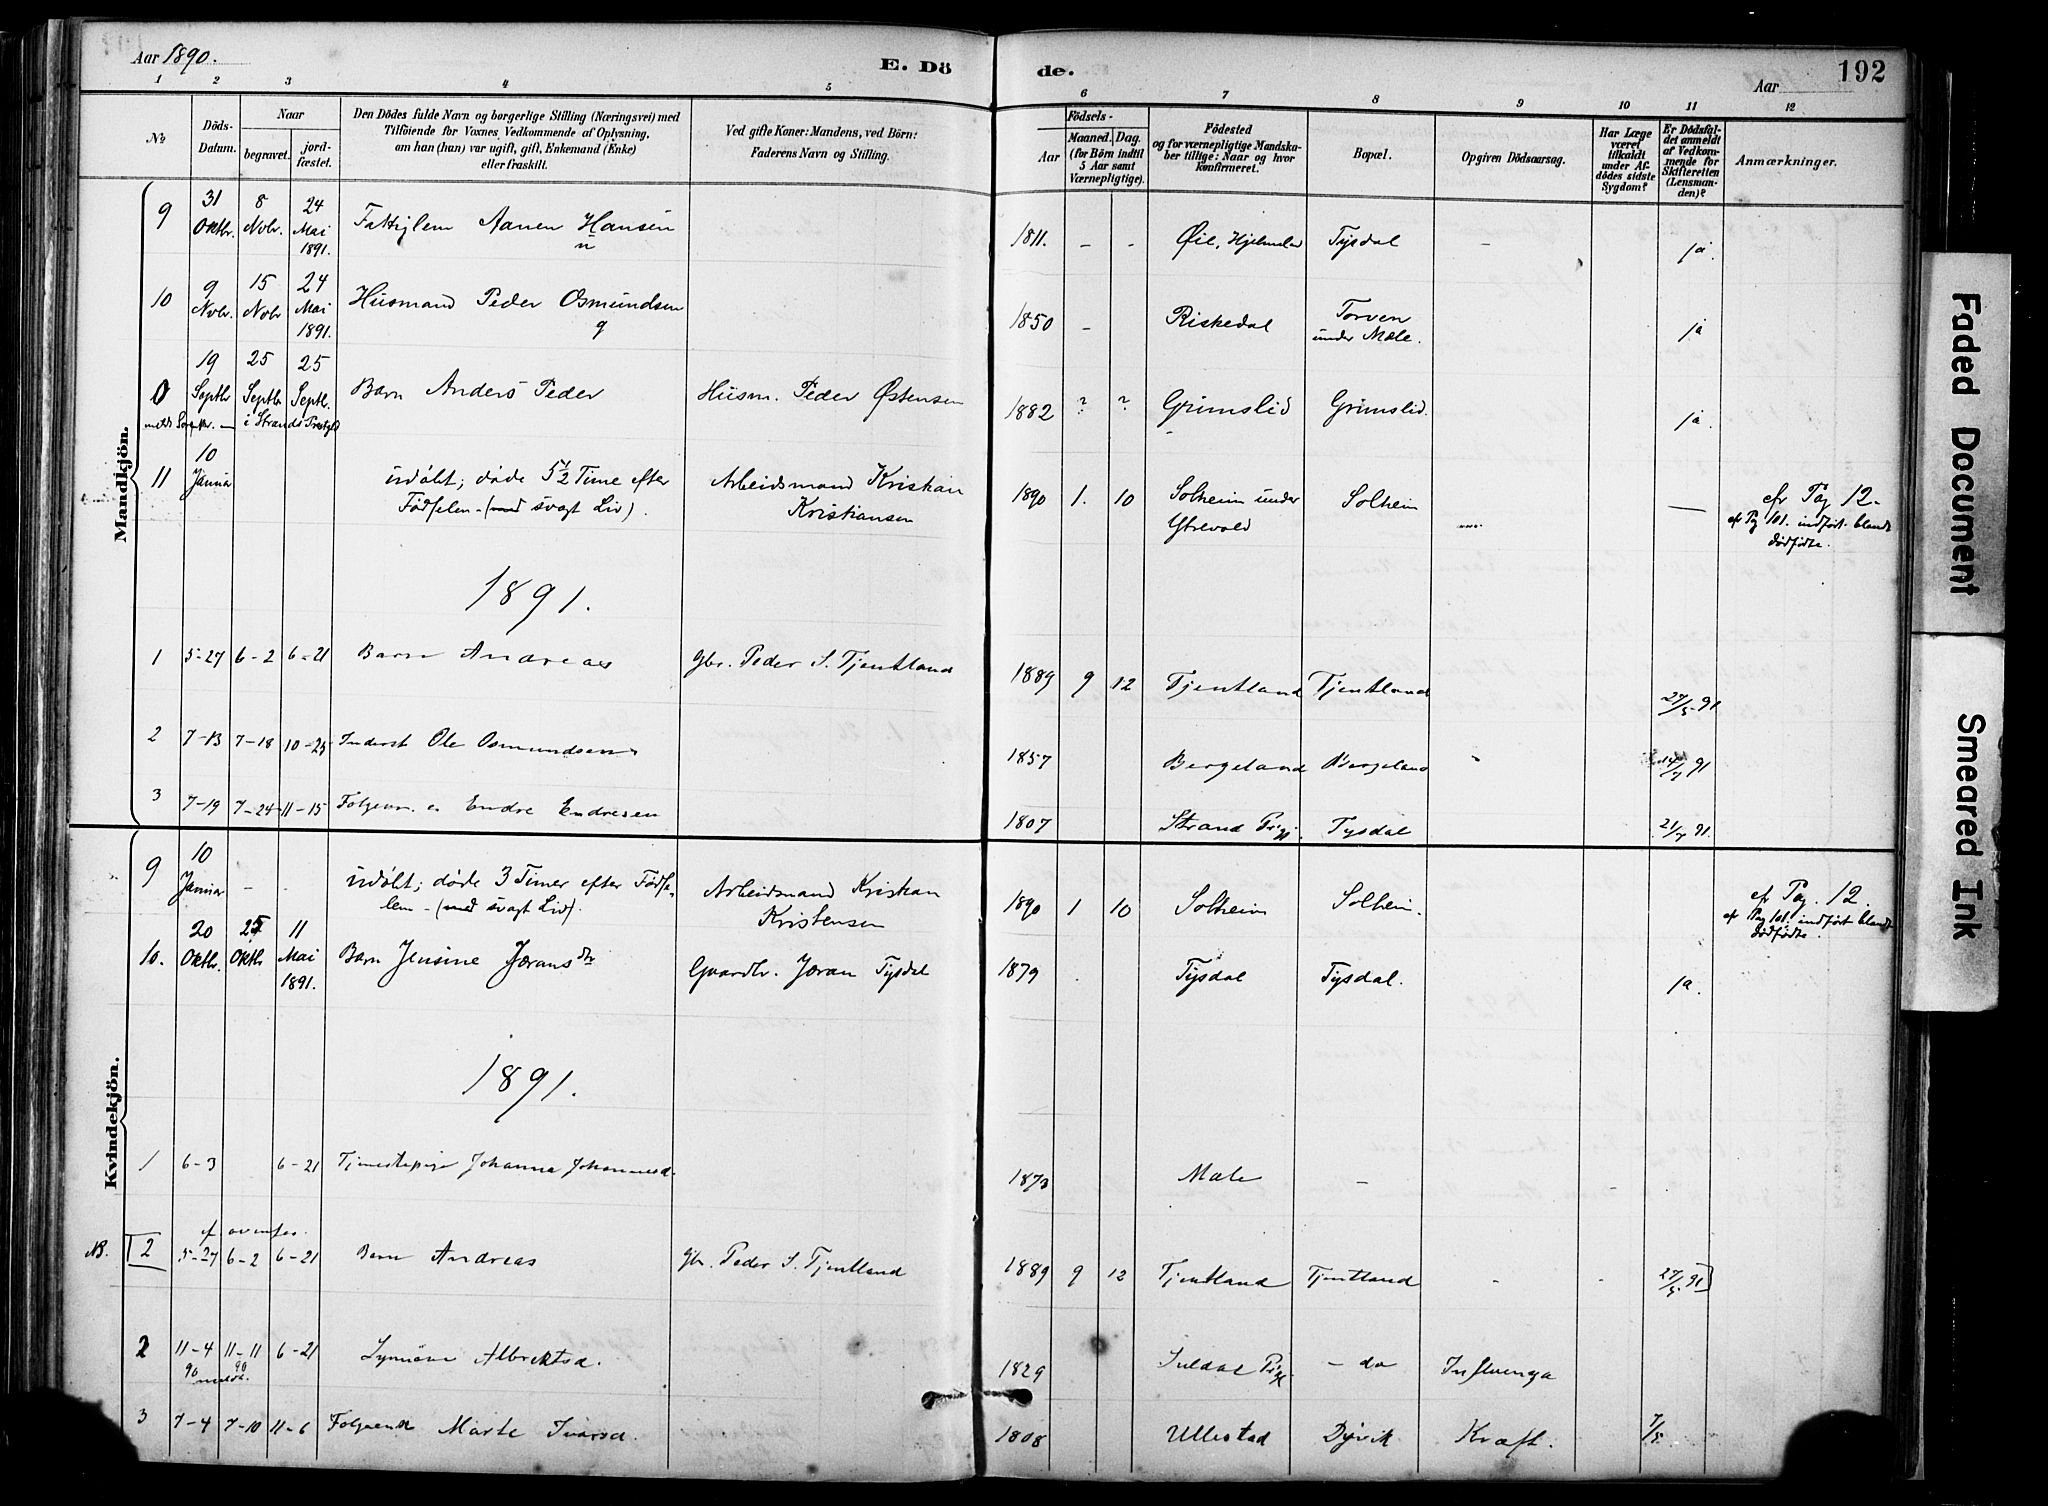 Aar 1890.
E. Döde.
Aar
192
1 2 3 4 5 6 7 8 9 10 11 12
No
Döds-Datum.
Naar
begravet.
jordfæstet.
Den Dödes fulde Navn og borgerlige Stilling (Næringsvei) med
Tilföiende for Voxnes Vedkommende af Oplysning,
om han (hun) var ugift, gift, Enkemand (Enke)
eller fraskilt.
Ved gifte Koner: Mandens, ved Börn:
Faderens Navn og Stilling.
Födsels-
Aar
Maaned. Dag.
(for Börn indtil
5 Aar samt
Værnepligtige).
Födested
og for værnepligtige Mandskaber tillige: Naar og hvor
konfirmeret.
Bopæl.
Opgiven Dödsaarsag.
Har Læge
været
tilkaldt
under Afdödes sidste
Sygdom?
Er Dödsfaldet anmeldt
af Vedkommende for
Skifteretten
(Lensmanden)?
Anmærkninger.
Mandkjön.
9 31 Oktbr. 8 Novbr. 24 Mai 1891. Fattiglem Aanen Hansen u 1811. - - Øie, Hjelmeland Tysdal - ja.
10 9 Novbr. 15 Novbr 24 Mai 1891. Husmand Peder Osmundsen g 1850 - Riskedal Torven under Mæle. ja
0 19 Septbr 25 Septbr 25 Septbr. Barn Anders Peder Husm. Peder Østensen 1882 ? ? Grimslid Grimslid. ja.
i Strands Prestgjld
11 10 Januar udøbt; døde 5½ Time efter Arbeidsmand Kristian 1890 1. 10 Solheim under Solheim — cfr Pag 12.
Fødselen - (med svagt Liv). Kristiansen Ytrevold cf Pg 101. indført blandt
dødfødte.
1891.
1 5-27 6-2 6-21 Barn Andreas gbr. Peder S. Tjentland 1889 9 12 Tjentland Tjentland 27/5 91
2 7-13 7-18 10-25 Inderst Ole Osmundsen 1857 Bergeland Bergeland " 14/7 91
3 7-19 7-24 11-15 Endre Endresen 1807 Strand Prgj. Tysdal 21/7 91.
Kvindekjön.
9 10 Januar - - udøbt; døde 3 Timer efter Fødse- Arbeidsmand Kristian 1890 1 10 Solheim Solheim. cf Pag. 12.
len - (med svagt Liv). Kristensen cf Pag 101. indført blandt
dødfødte.
10. 20 Oktbr. 25 Oktbr 11 Mai 1891. Barn Jensine Jørans dtr Gaardbr. Jøran Tysdal 1879 . Tysdal Tysdal. ja.
1891.
1 6-3 6-21 Tjenestepige Johanna Johannesd. 1873 Mæle -
cf ovenfor
NB. [2 5-27 6-2 6-21 Barn Andreas gbr. Peder S. Tjentland 1889 9 12 Tjentland Tjentland - - 27/5 91]
2 11-4 90 11-11 90 6-21 Synnöve Albrektsd. 1829 Suldal Prgj. - do Influenza
meldt.
3 7-4 7-10 11-6 Marte Ivarsd. 1808 Ullestad Dyrvik Kræft. 7/5.
Faded Document
Smeared Ink